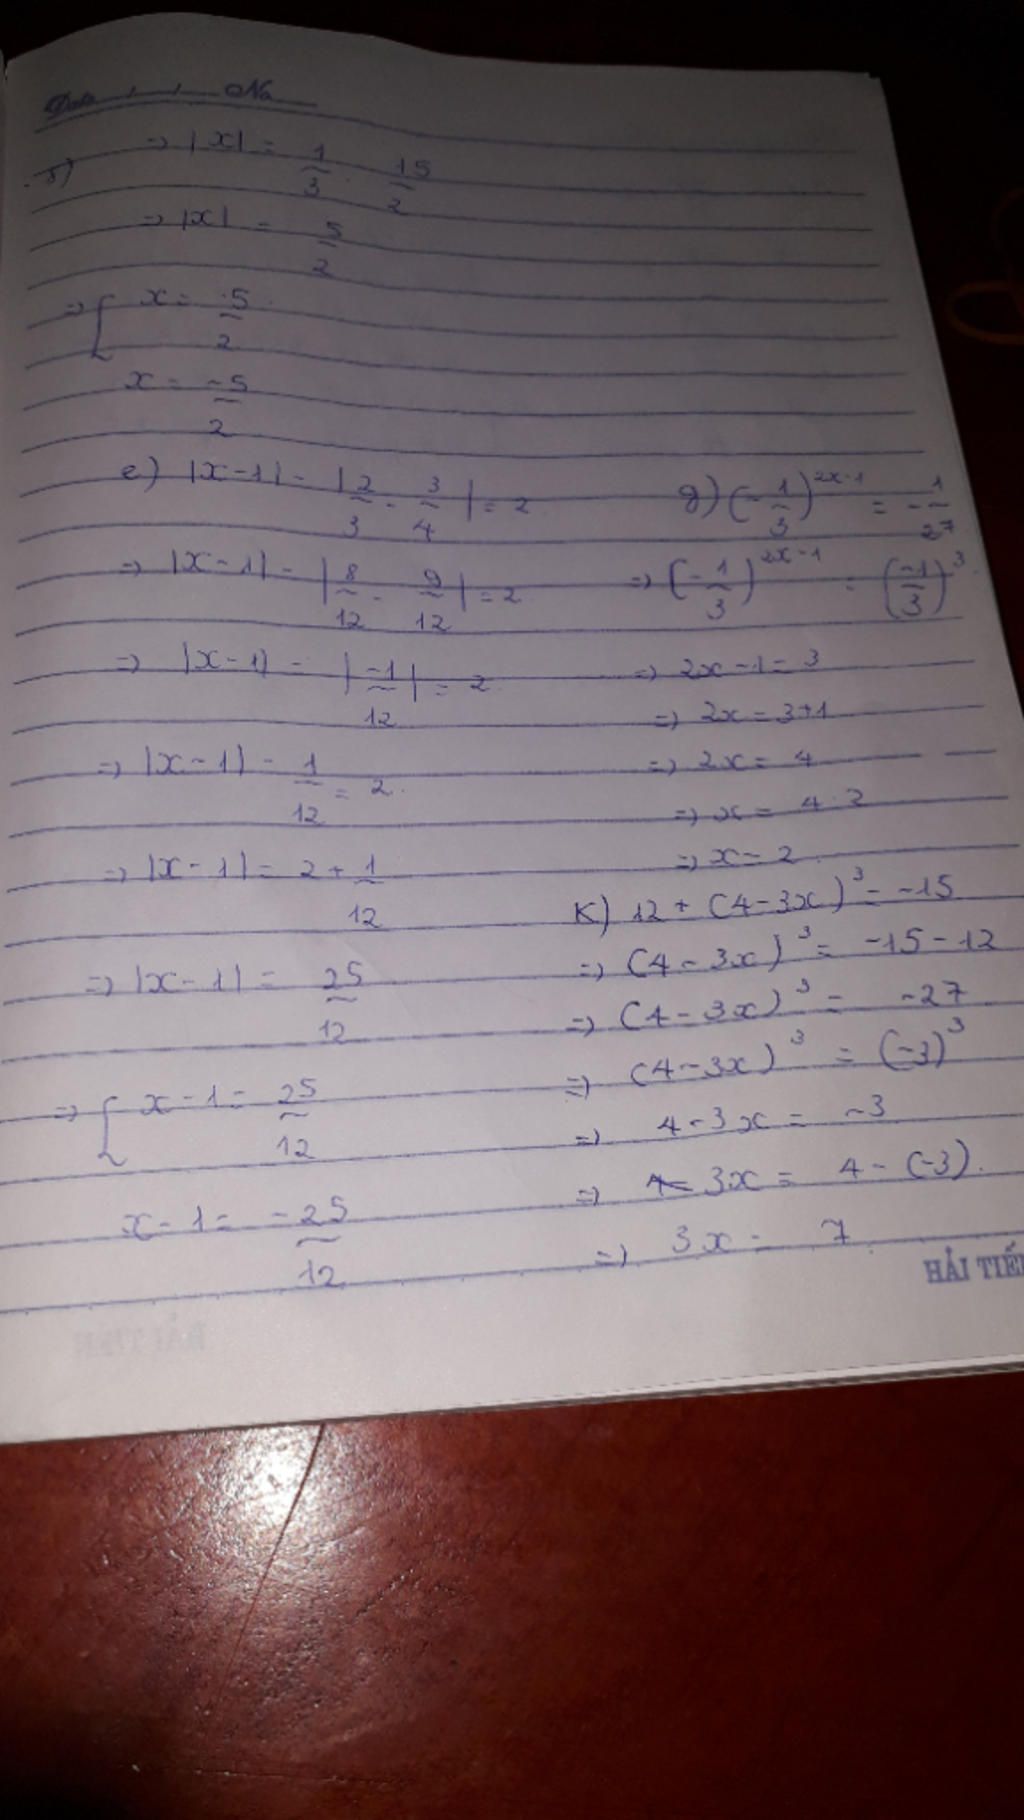 Date / / No
⇒ |x| = 1/3 . 15/2
⇒ |x| = 5/2
⇒ [ x = 5/2
x = -5/2
e) |x-1| - |2/3 - 3/4| = 2
⇒ |x-1| - |8/12 - 9/12| = 2
⇒ |x-1| - |-1/12| = 2
⇒ |x-1| - 1/12 = 2
⇒ |x-1| = 2 + 1/12
⇒ |x-1| = 25/12
⇒ [ x-1 = 25/12
x-1 = -25/12
g) (-1/3)^2x-1 = -1/27
⇒ (-1/3)^2x-1 = (-1/3)^3
⇒ 2x-1 = 3
⇒ 2x = 3+1
⇒ 2x = 4
⇒ x = 4:2
⇒ x = 2
K) 12 + (4-3x)^3 = -15
⇒ (4-3x)^3 = -15-12
⇒ (4-3x)^3 = -27
⇒ (4-3x)^3 = (-3)^3
⇒ 4-3x = -3
⇒ 3x = 4-(-3).
⇒ 3x = 7
HẢI TIẾN